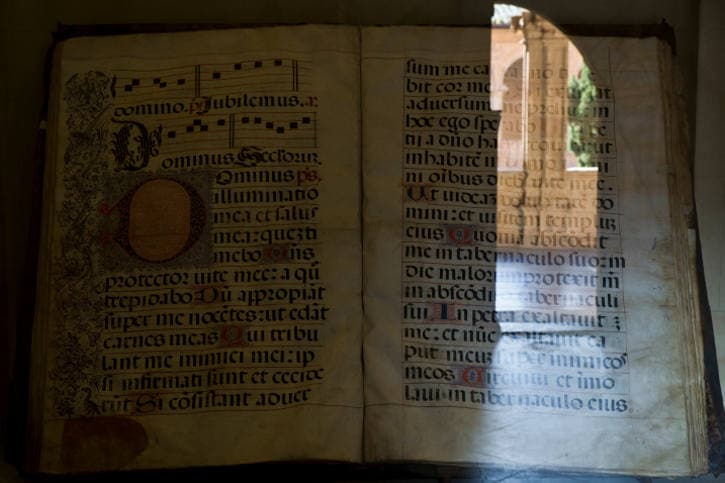 domino. ps Jubilemus. ac
Dominus Defensor.
Ominus ps.
illuminatio
mea et salus
mea: quez ti
mebo Dn̄s
protector uite mee: a qū
trepidabo Dū appropiāt
super me nocētes: ut edāt
carnes meas Qui tribu
lant me inimici mei: ip
si infirmati sunt et cecide
rūt Si cōsistant aduer
sum me ca nō
bit cor me
aduersum preliū in
hoc ego spe
tā a dn̄o ha
inhabite in
ni oibus die uite mee.
Ut uideaz uolūtatē do
mini: et uisitem templuz
eius Quoniā abscōdit
me in tabernaculo suo: in
die malorū protexit m̄
in abscōdi tabernaculi
sui In petra exaltauit ⁊
me: et nūc exaltauit ca
put meuz super inimicos
meos Circuiui et imo
laui in tabernaculo eius